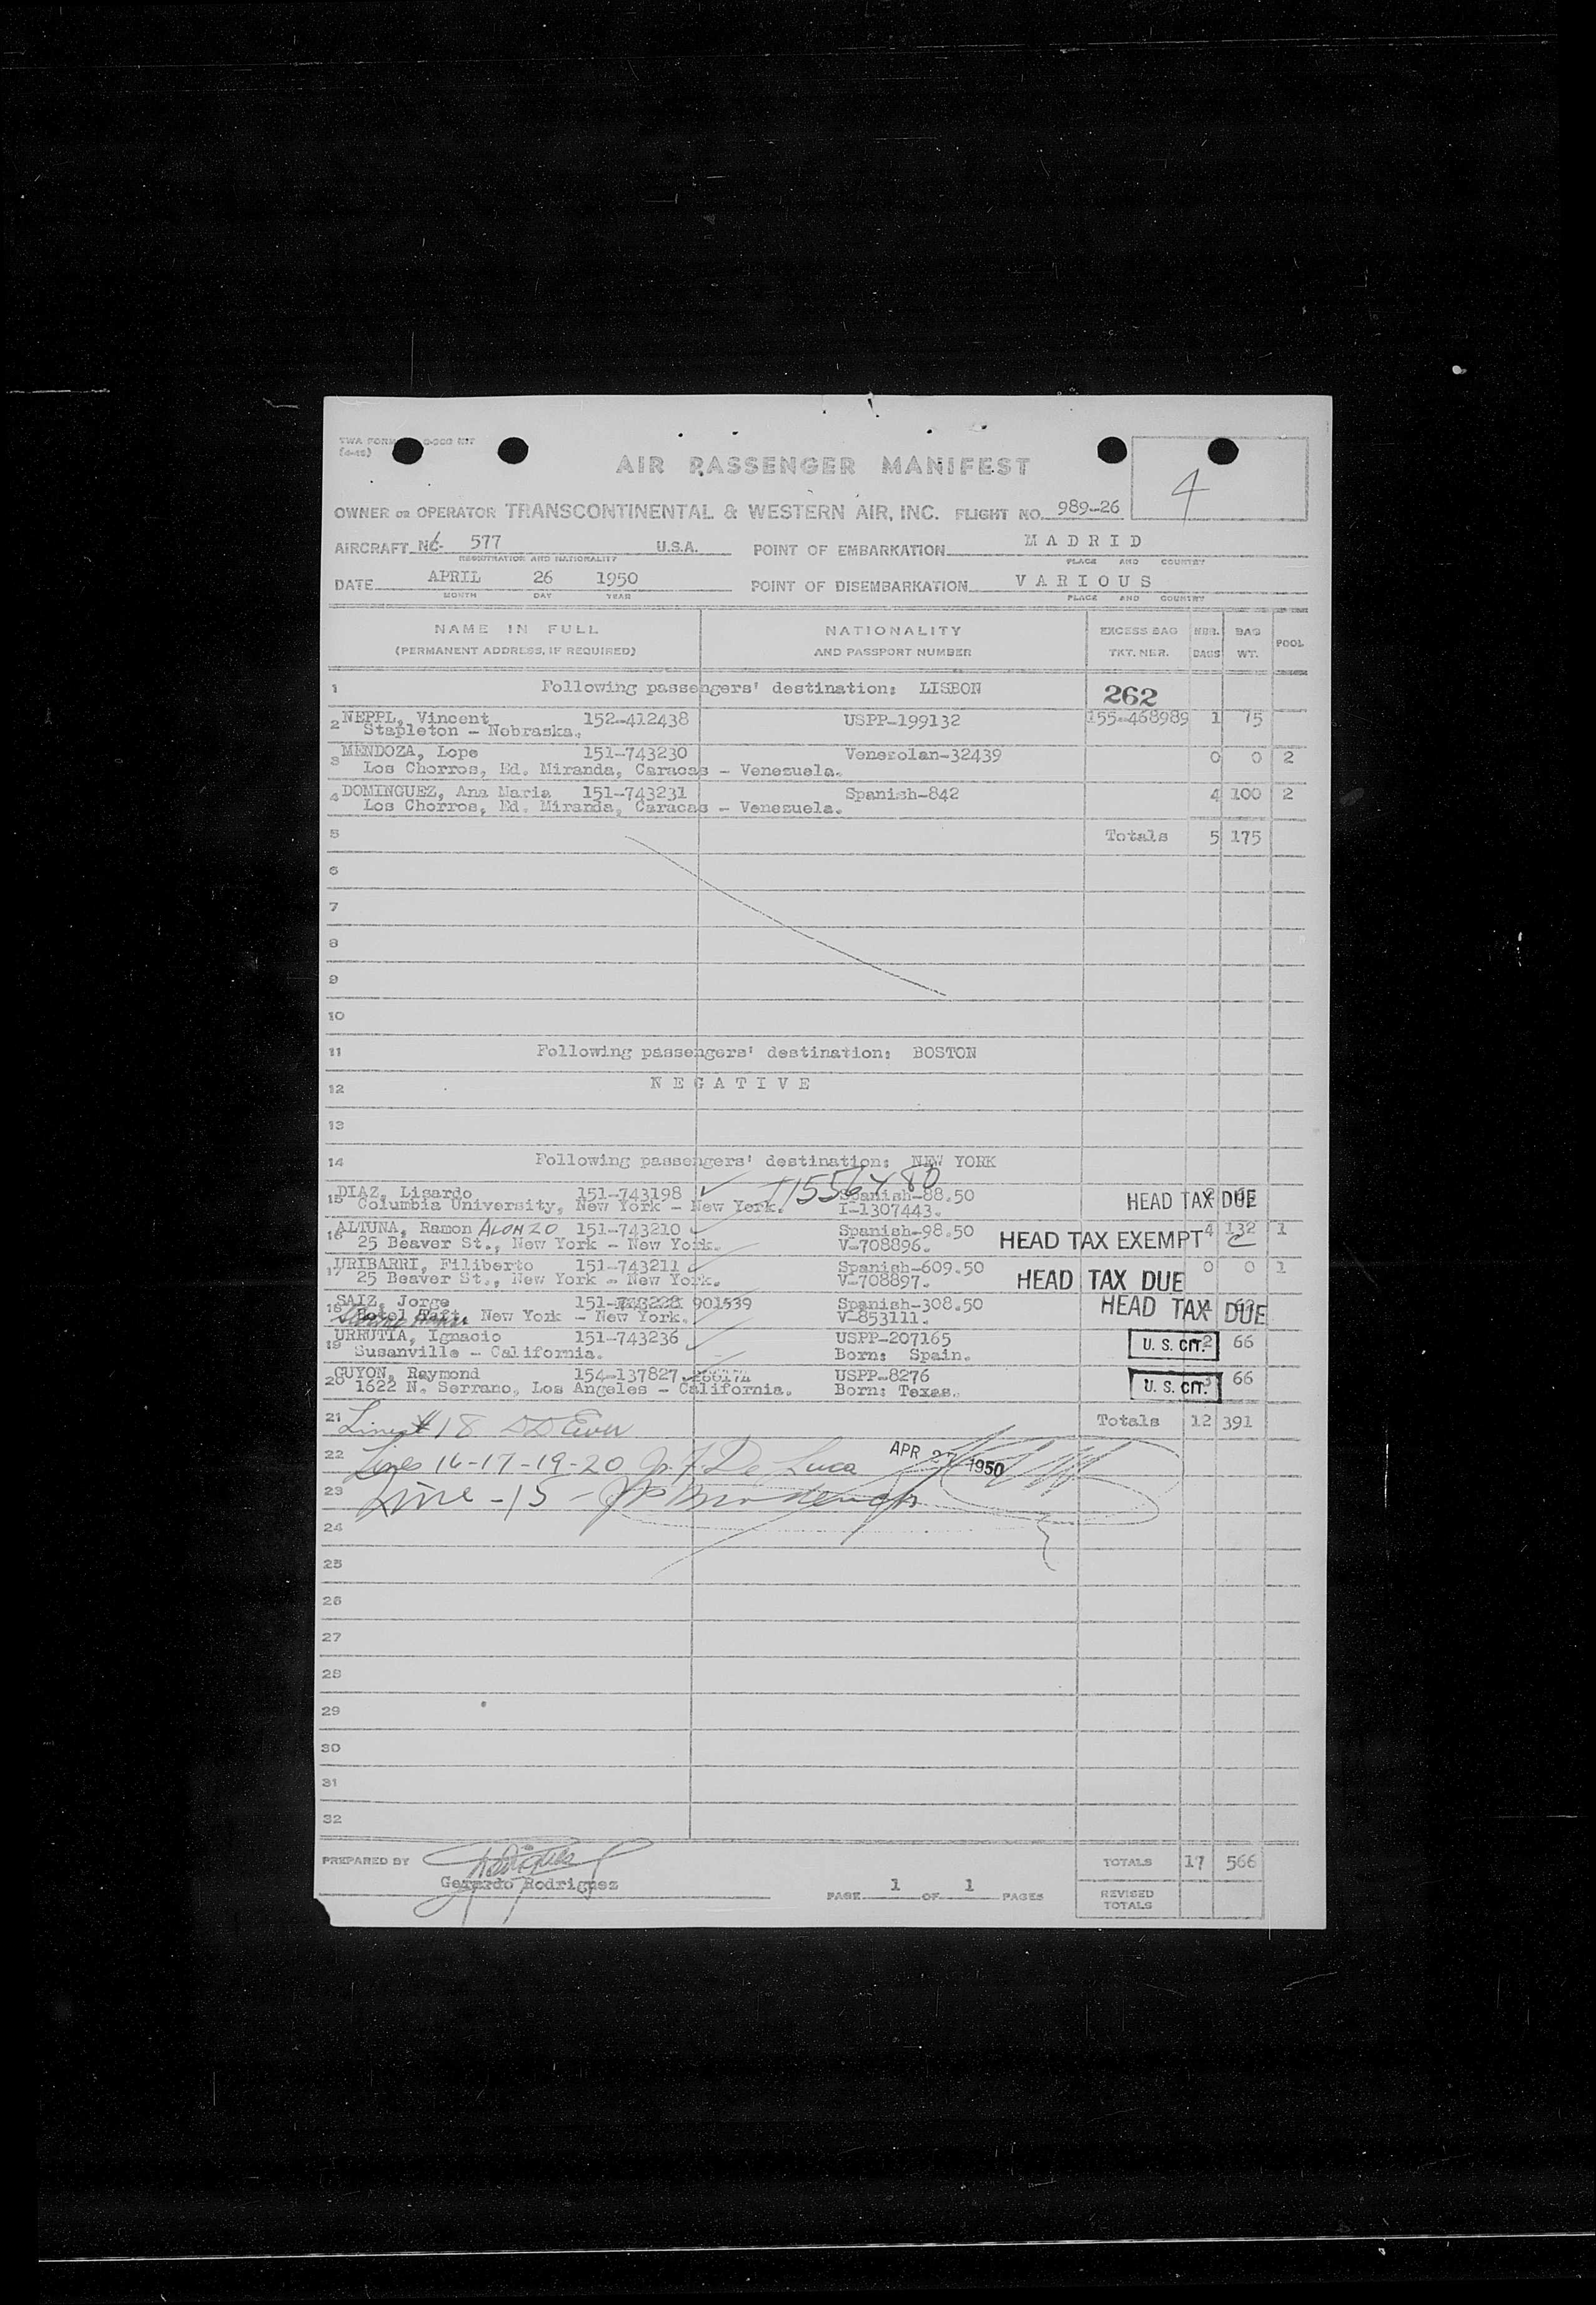 TWA FORM
4
AIR PASSENGER MANIFEST
OWNER OR OPERATOR TRANSCONTINENTAL & WESTERN AIR, INC. FLIGHT NO. 989-26
AIRCRAFT NC- 577 U.S.A. POINT OF EMBARKATION MADRID
REGISTRATION AND NATIONALITY PLACE AND COUNTRY
DATE APRIL 26 1950 POINT OF DISEMBARKATION VARIOUS
MONTH DAY YEAR PLACE AND COUNTRY
NAME IN FULL NATIONALITY EXCESS BAG NBR. BAG POOL
(PERMANENT ADDRESS, IF REQUIRED) AND PASSPORT NUMBER TKT. NBR. BAGS WT.
1 Following passengers' destination: LISBON 262
2 NEPPL, Vincent 152-412438 USPP-199132 155-468989 1 75
Stapleton - Nebraska.
3 MENDOZA, Lope 151-743230 Venezolan-32439 0 0 2
Los Chorros, Ed. Miranda, Caracas - Venezuela.
4 DOMINGUEZ, Ana Maria 151-743231 Spanish-842 4 100 2
Los Chorros, Ed. Miranda, Caracas - Venezuela.
5 Totals 5 175
6
7
8
9
10
11 Following passengers' destination: BOSTON
12 NEGATIVE
13
14 Following passengers' destination: NEW YORK
15 DIAZ, Lisardo 151-743198 Spanish-88.50 HEAD TAX DUE
Columbia University, New York - New York. I-1307443.
16 ALTUNA, Ramon ALONZO 151-743210 Spanish-98.50 HEAD TAX EXEMPT 4 132 1
25 Beaver St., New York - New York. V-708896. C
17 URIBARRI, Filiberto 151-743211 Spanish-609.50 HEAD TAX DUE 0 0 1
25 Beaver St., New York - New York. V-708897.
18 SAIZ, Jorge 151- 901539 Spanish-308.50 HEAD TAX DUE
Hotel Taft, New York - New York. V-853111.
19 URRUTIA, Ignacio 151-743236 USPP-207165 U. S. CIT. 2 66
Susanville - California. Born: Spain.
20 GUYON, Raymond 154-137827 USPP-8276 U. S. CIT. 3 66
1622 N. Serrano, Los Angeles - California. Born: Texas.
21 Line # 18 Totals 12 391
22 Lines 16-17-19-20 De Luca APR 1950
23 Line - 15 -
24
25
26
27
28
29
30
31
32
PREPARED BY TOTALS 17 566
Gerardo Rodriguez
PAGE 1 OF 1 PAGES REVISED TOTALS